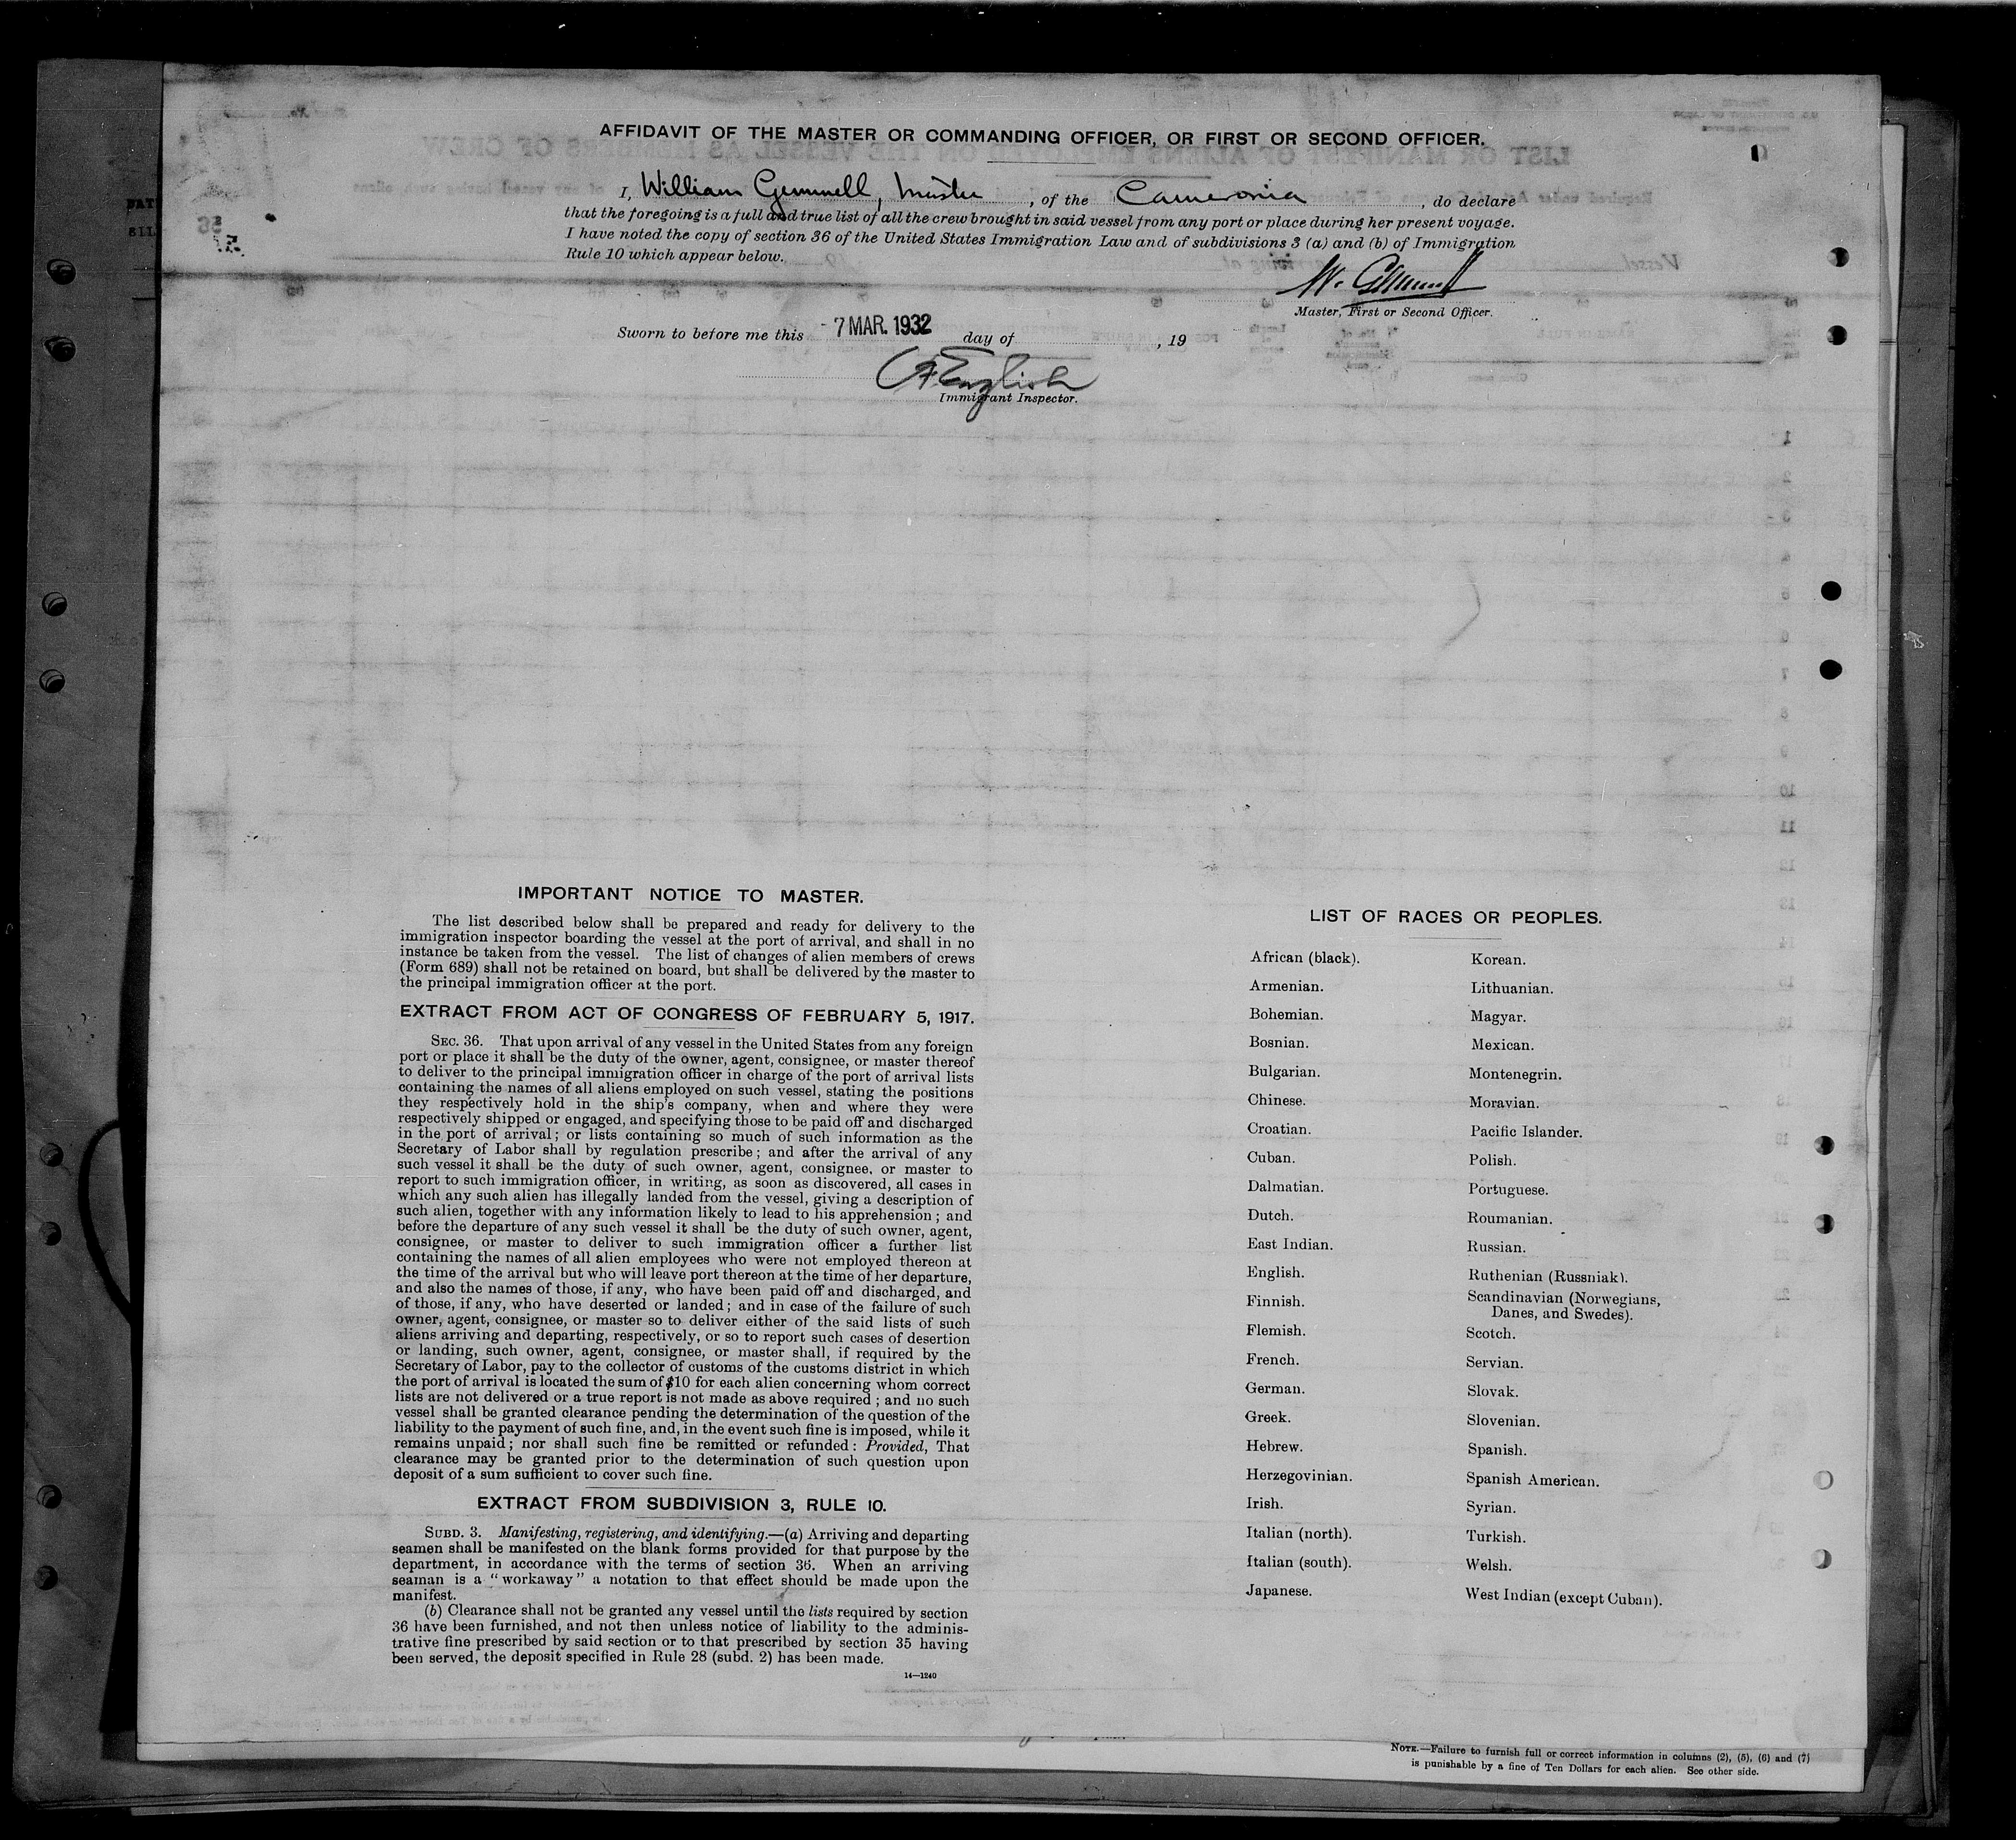 AFFIDAVIT OF THE MASTER OR COMMANDING OFFICER, OR FIRST OR SECOND OFFICER.
I, William Gemmell, Master, of the Cameronia, do declare
that the foregoing is a full and true list of all the crew brought in said vessel from any port or place during her present voyage.
I have noted the copy of section 36 of the United States Immigration Law and of subdivisions 3 (a) and (b) of Immigration
Rule 10 which appear below.
W. Gemmell
Master, First or Second Officer.
Sworn to before me this - 7 MAR. 1932 day of , 19
English
Immigrant Inspector.
IMPORTANT NOTICE TO MASTER.
The list described below shall be prepared and ready for delivery to the
immigration inspector boarding the vessel at the port of arrival, and shall in no
instance be taken from the vessel. The list of changes of alien members of crews
(Form 689) shall not be retained on board, but shall be delivered by the master to
the principal immigration officer at the port.
EXTRACT FROM ACT OF CONGRESS OF FEBRUARY 5, 1917.
SEC. 36. That upon arrival of any vessel in the United States from any foreign
port or place it shall be the duty of the owner, agent, consignee, or master thereof
to deliver to the principal immigration officer in charge of the port of arrival lists
containing the names of all aliens employed on such vessel, stating the positions
they respectively hold in the ship's company, when and where they were
respectively shipped or engaged, and specifying those to be paid off and discharged
in the port of arrival; or lists containing so much of such information as the
Secretary of Labor shall by regulation prescribe; and after the arrival of any
such vessel it shall be the duty of such owner, agent, consignee, or master to
report to such immigration officer, in writing, as soon as discovered, all cases in
which any such alien has illegally landed from the vessel, giving a description of
such alien, together with any information likely to lead to his apprehension; and
before the departure of any such vessel it shall be the duty of such owner, agent,
consignee, or master to deliver to such immigration officer a further list
containing the names of all alien employees who were not employed thereon at
the time of the arrival but who will leave port thereon at the time of her departure,
and also the names of those, if any, who have been paid off and discharged, and
of those, if any, who have deserted or landed; and in case of the failure of such
owner, agent, consignee, or master so to deliver either of the said lists of such
aliens arriving and departing, respectively, or so to report such cases of desertion
or landing, such owner, agent, consignee, or master shall, if required by the
Secretary of Labor, pay to the collector of customs of the customs district in which
the port of arrival is located the sum of $10 for each alien concerning whom correct
lists are not delivered or a true report is not made as above required; and no such
vessel shall be granted clearance pending the determination of the question of the
liability to the payment of such fine, and, in the event such fine is imposed, while it
remains unpaid; nor shall such fine be remitted or refunded: Provided, That
clearance may be granted prior to the determination of such question upon
deposit of a sum sufficient to cover such fine.
EXTRACT FROM SUBDIVISION 3, RULE 10.
SUBD. 3. Manifesting, registering, and identifying.—(a) Arriving and departing
seamen shall be manifested on the blank forms provided for that purpose by the
department, in accordance with the terms of section 36. When an arriving
seaman is a "workaway" a notation to that effect should be made upon the
manifest.
(b) Clearance shall not be granted any vessel until the lists required by section
36 have been furnished, and not then unless notice of liability to the adminis-
trative fine prescribed by said section or to that prescribed by section 35 having
been served, the deposit specified in Rule 28 (subd. 2) has been made.
14—1240
LIST OF RACES OR PEOPLES.
African (black).
Armenian.
Bohemian.
Bosnian.
Bulgarian.
Chinese.
Croatian.
Cuban.
Dalmatian.
Dutch.
East Indian.
English.
Finnish.
Flemish.
French.
German.
Greek.
Hebrew.
Herzegovinian.
Irish.
Italian (north).
Italian (south).
Japanese.
Korean.
Lithuanian.
Magyar.
Mexican.
Montenegrin.
Moravian.
Pacific Islander.
Polish.
Portuguese.
Roumanian.
Russian.
Ruthenian (Russniak).
Scandinavian (Norwegians,
Danes, and Swedes).
Scotch.
Servian.
Slovak.
Slovenian.
Spanish.
Spanish American.
Syrian.
Turkish.
Welsh.
West Indian (except Cuban).
NOTE.—Failure to furnish full or correct information in columns (2), (5), (6) and (7)
is punishable by a fine of Ten Dollars for each alien. See other side.